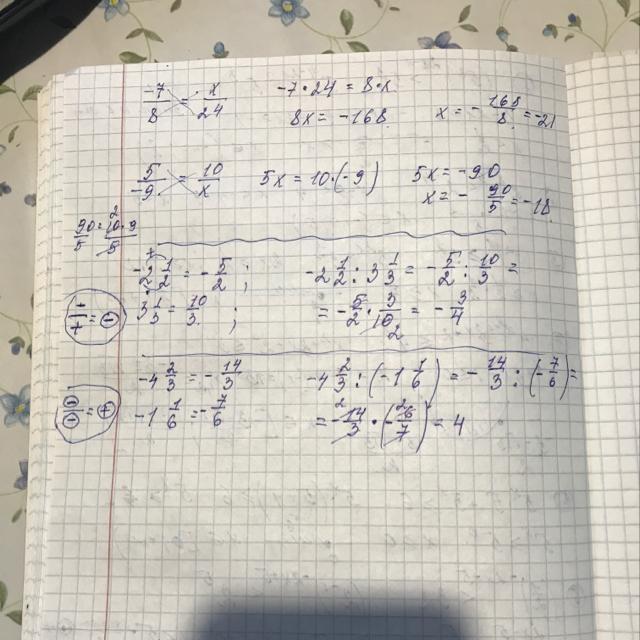 -7/8 = x/24    -7·24 = 8·x
8x = -168    x = -168/8 = -21
5/-9 = 10/x    5x = 10·(-9)    5x = -90
x = -90/5 = -18
90/5 = 10·9/5
-2 1/2 = -5/2 ;    -2 1/2 : 3 1/3 = -5/2 : 10/3 =
3 1/3 = 10/3 ;    = -5/2 · 3/10 2 = -3/4
-4 2/3 = -14/3    -4 2/3 : (-1 1/6) = -14/3 : (-7/6) =
-1 1/6 = -7/6    = -14/3 · (-6/7) = 4